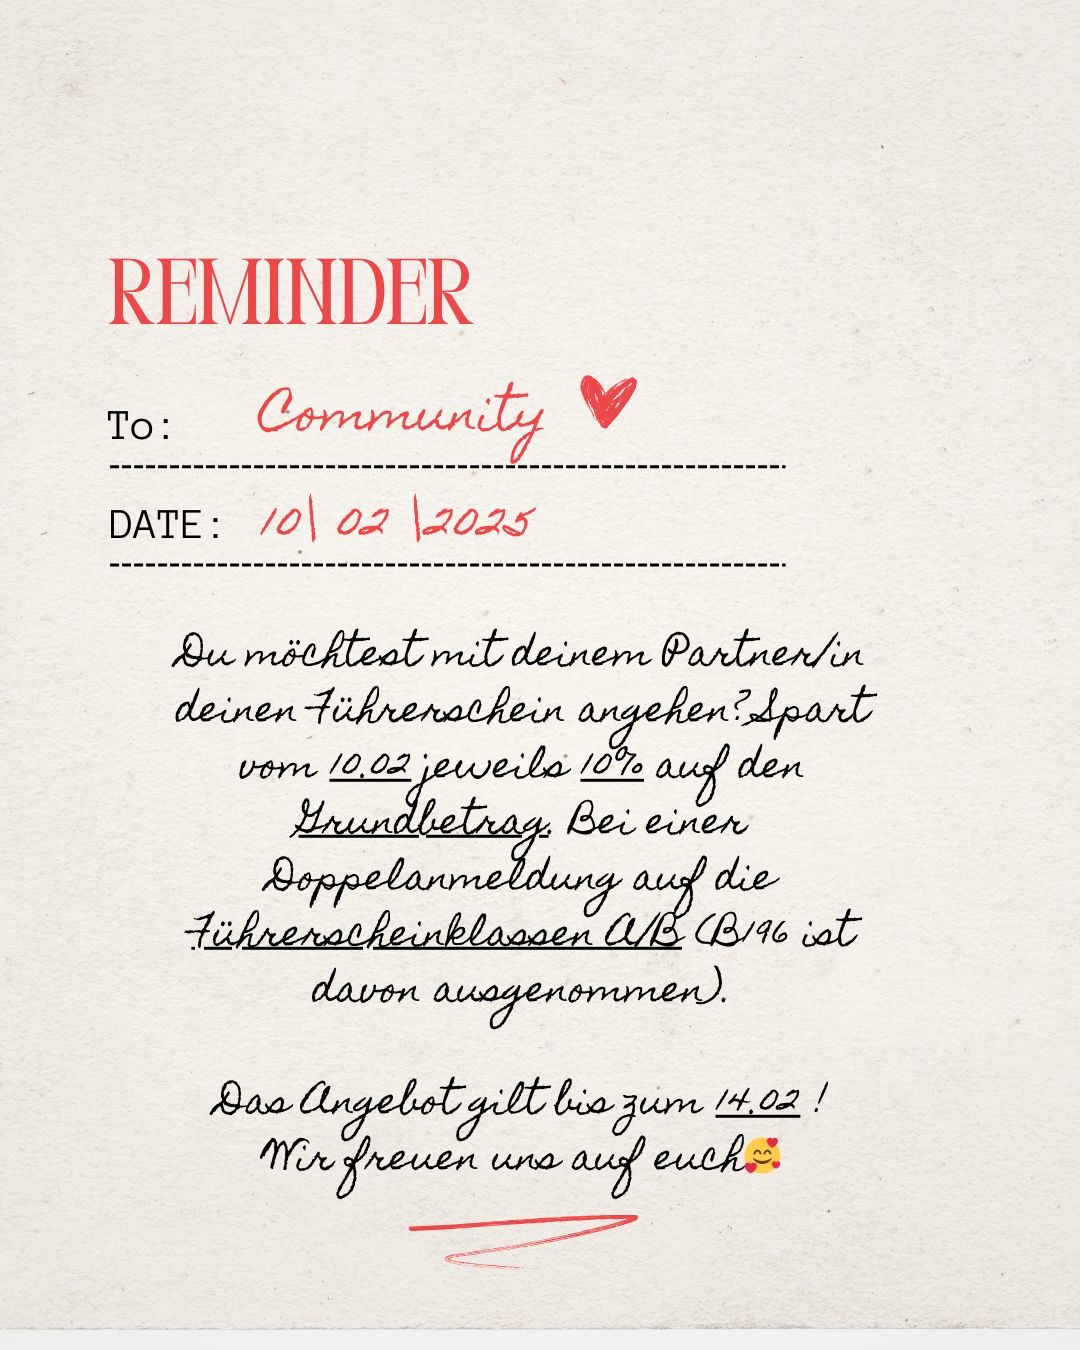 REMINDER
To: Community
DATE: 10| 02 |2025
Du möchtest mit deinem Partner/in
deinen Führerschein angehen? Spart
vom 10.02 jeweils 10% auf den
Grundbetrag. Bei einer
Doppelanmeldung auf die
Führerscheinklassen A/B (B196 ist
davon ausgenommen).
Das Angebot gilt bis zum 14.02 !
Wir freuen uns auf euch🥰